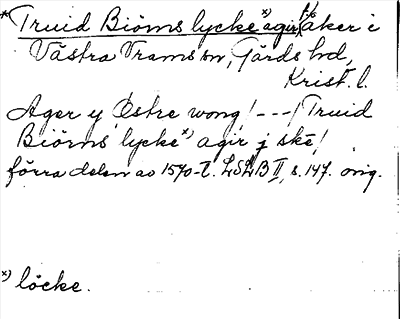 *Truid Biörns lycke x) agir, f/o åker i
Västra Vrams sn, Gärds hd,
Krist. l.
Ager y Østre wong / - - - / Truid
Biörns lycke x) agir j skē /
förra delen av 1570-t. LSLB II, s. 147. orig.
x) löcke.